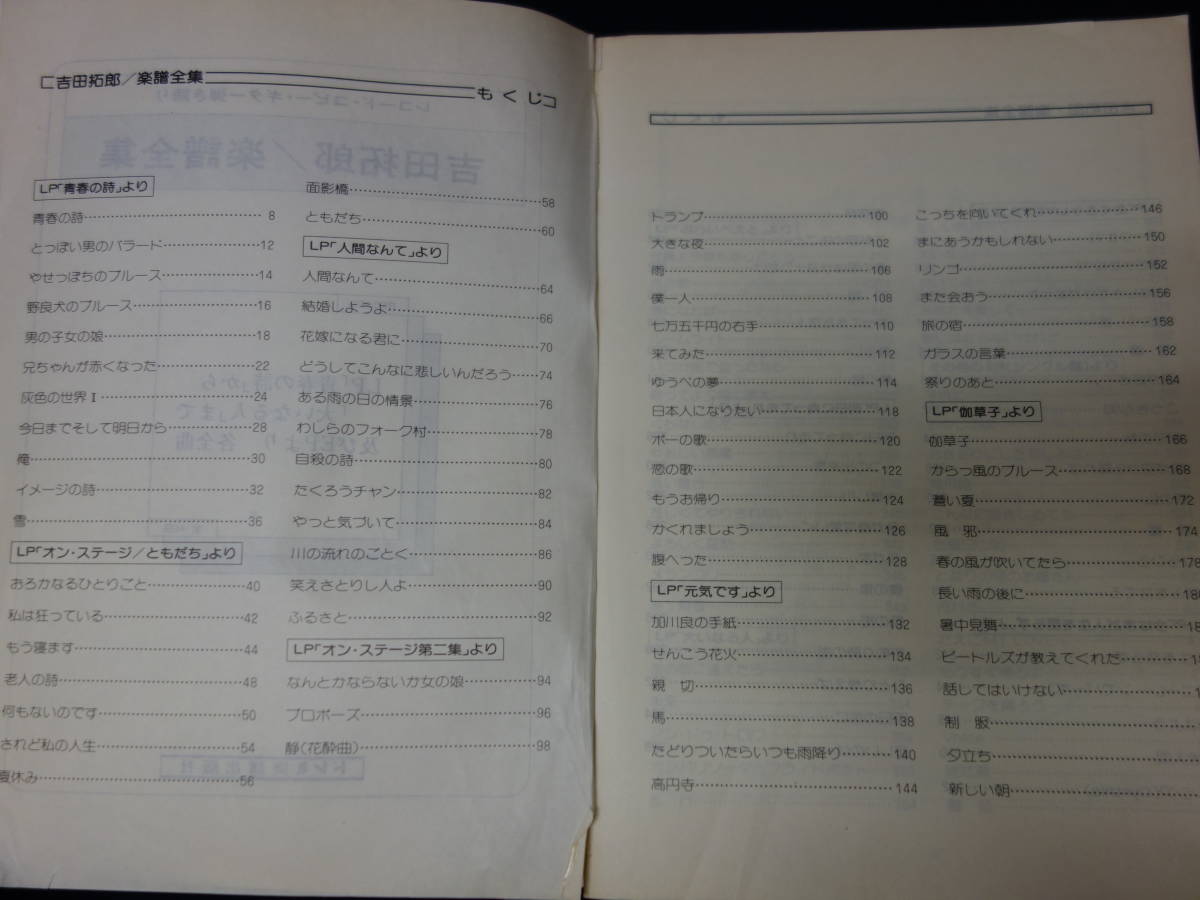 吉田拓郎／楽譜全集
もくじ
LP「青春の詩」より
青春の詩 8
とっぽい男のバラード 12
やせっぽちのブルース 14
野良犬のブルース 16
男の子女の娘 18
兄ちゃんが赤くなった 22
灰色の世界I 24
今日までそして明日から 28
俺 30
イメージの詩 32
雪 36
LP「オン・ステージ／ともだち」より
おろかなるひとりごと 40
私は狂っている 42
もう寝ます 44
老人の詩 48
何もないのです 50
されど私の人生 54
夏休み 56
面影橋 58
ともだち 60
LP「人間なんて」より
人間なんて 64
結婚しようよ 66
花嫁になる君に 70
どうしてこんなに悲しいんだろう 74
ある雨の日の情景 76
わしらのフォーク村 78
自殺の詩 80
たくろうチャン 82
やっと気づいて 84
川の流れのごとく 86
笑えさとりし人よ 90
ふるさと 92
LP「オン・ステージ第二集」より
なんとかならないか女の娘 94
プロポーズ 96
静(花酔曲) 98
トランプ 100
大きな夜 102
雨 106
僕一人 108
七万五千円の右手 110
来てみた 112
ゆうべの夢 114
日本人になりたい 118
ポーの歌 120
恋の歌 122
もうお帰り 124
かくれましょう 126
腹へった 128
LP「元気です」より
加川良の手紙 132
せんこう花火 134
親 切 136
馬 138
たどりついたらいつも雨降り 140
高円寺 144
こっちを向いてくれ 146
まにあうかもしれない 150
リンゴ 152
また会おう 156
旅の宿 158
ガラスの言葉 162
祭りのあと 164
LP「伽草子」より
伽草子 166
からっ風のブルース 168
蒼い夏 172
風 邪 174
春の風が吹いてたら 178
長い雨の後に
暑中見舞
ビートルズが教えてくれた
話してはいけない
制 服
夕立ち
新しい朝